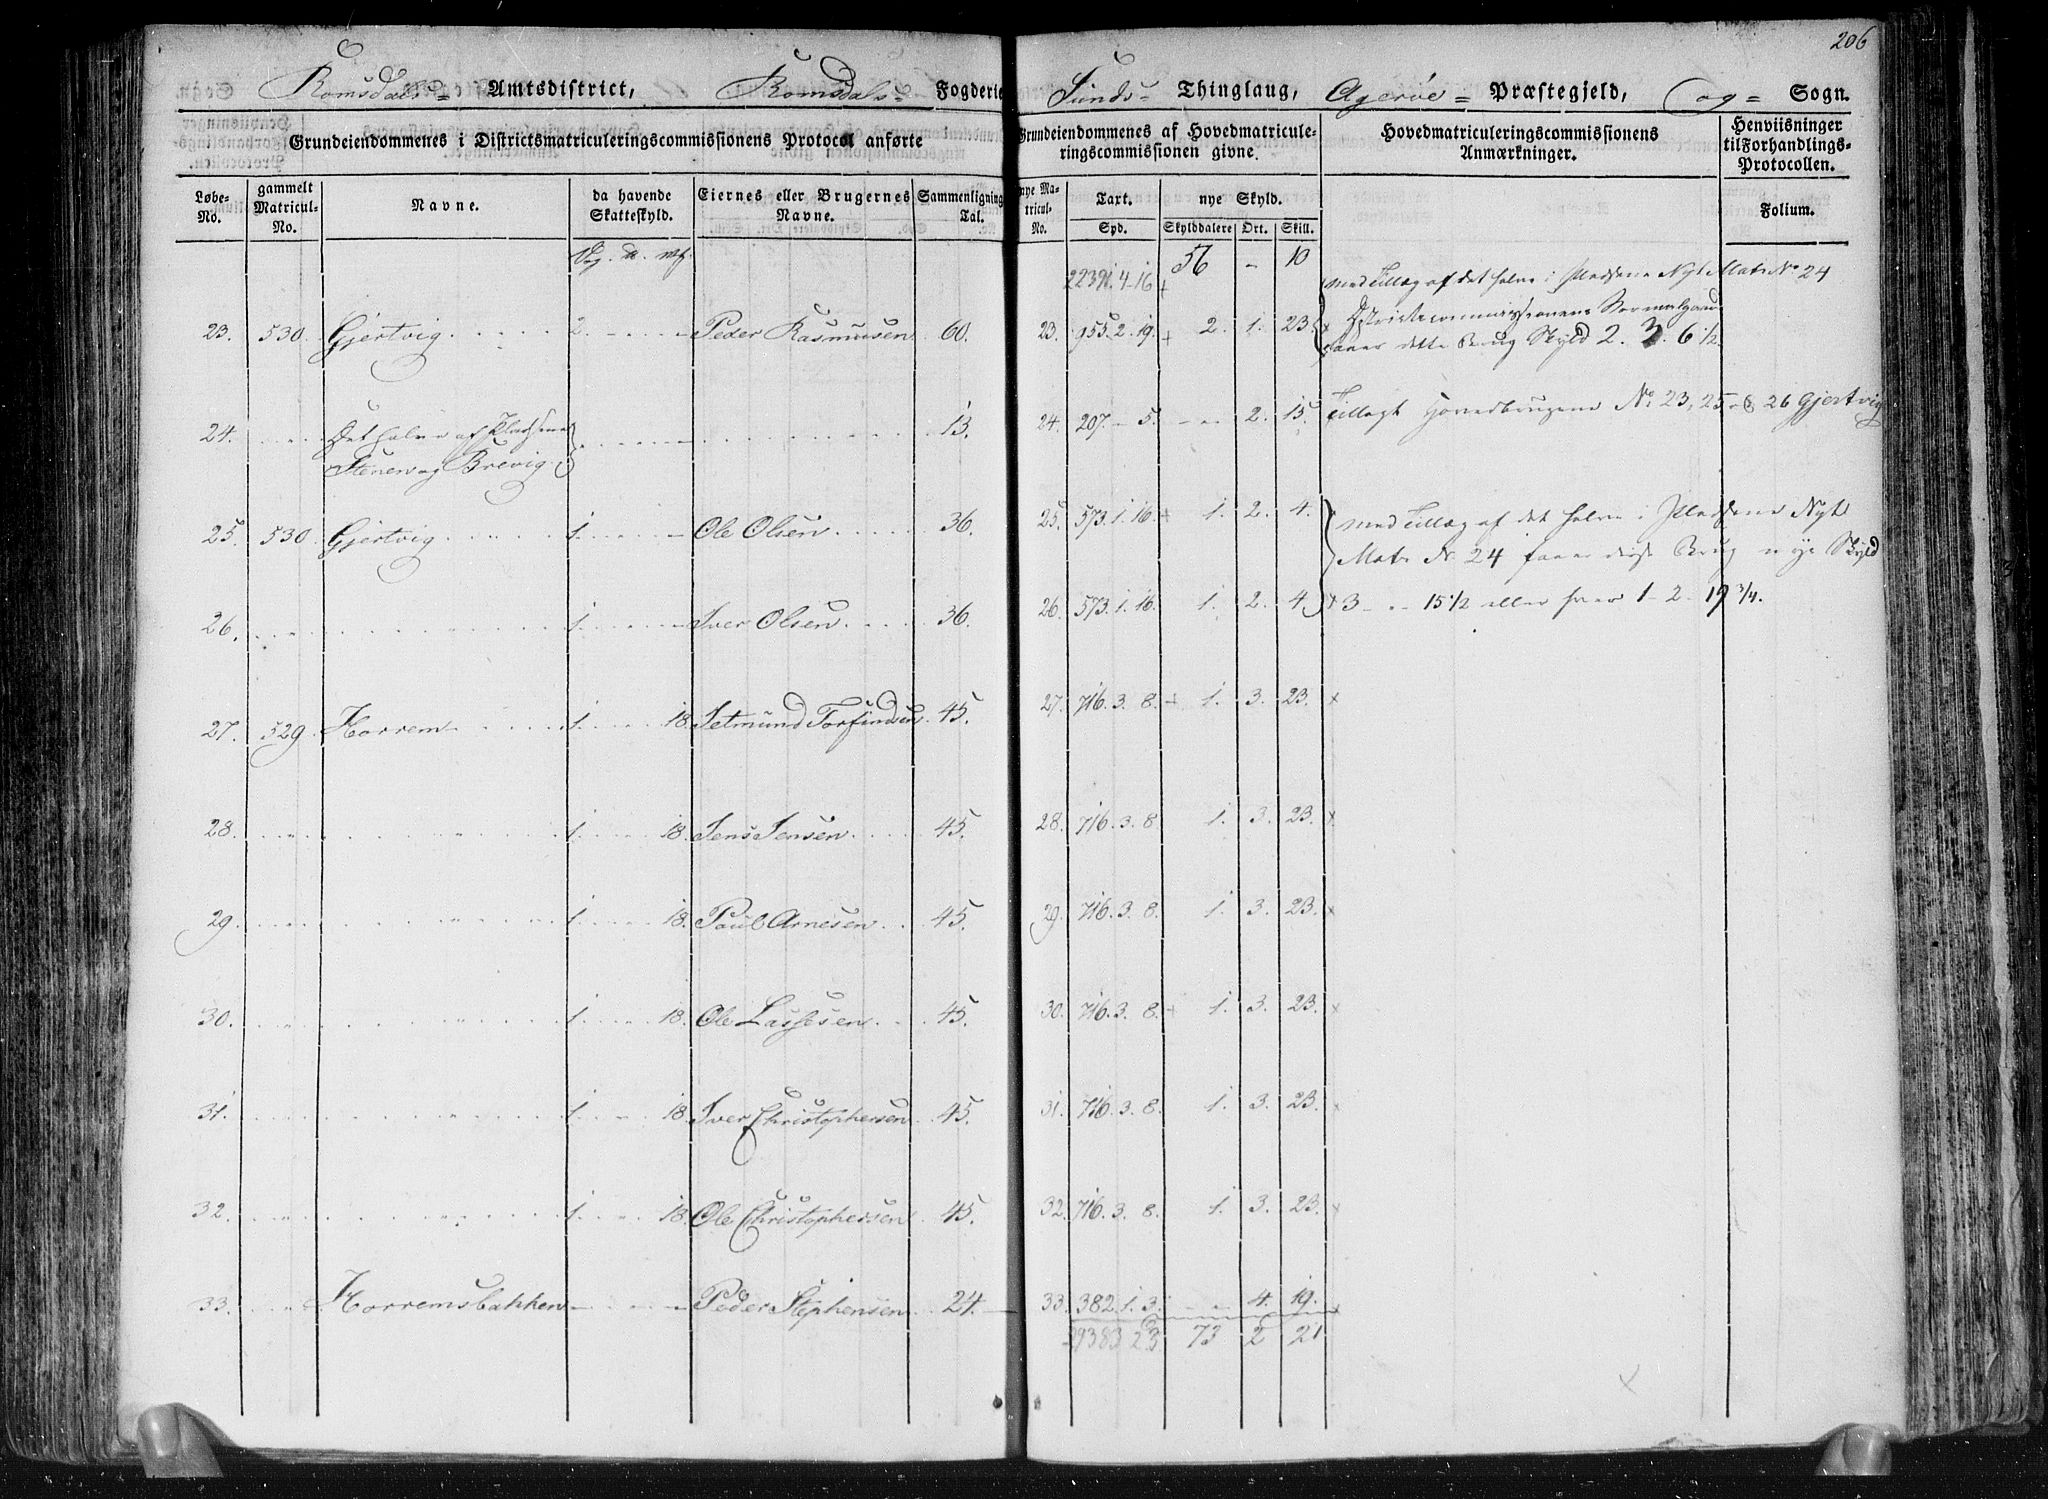 206
Romsdals= Amtsdistrict, Romsdals= Fogderie Sunds= Thinglaug, Agerøe= Præstegjeld, og= Sogn.
Grundeiendommenes i Districtsmatriculeringscommissionens Protocol anførte
Grundeiendommenes af Hovedmatricule-
ringscommissionen givne.
Hovedmatriculeringscommissionens
Anmærkninger.
Henviisninger
til Forhandlings-
Protocollen.
Løbe-
No.
gammelt
Matricul-
No.
Navne.
da havende
Skatteskyld.
Eiernes eller Brugernes
Navne.
Sammenlignings
Tal.
nye Ma-
tricul-
No.
Taxt.
Spd.
nye Skyld.
Skylddalere Ort. Skill.
Folium.
22391.4-16 56 - 10
med Tillæg af det halve i Pladsene Nyt Mat. No 24
23. 530. Gjertvig 2. Peder Rasmusen 60. 23. 955.2.19. 2. 1. 23.
faaer dette Brug Skyld 2. 3. 6 1/2
24. Det halve af Pladsene
Stenen og Brevig 13. 24. 207.-5. - 2. 15. Tillagt Hovedbrugene No. 23, 25 & 26 Gjertvig
25. 530. Gjertvig 1. Ole Olsen 36. 25. 573.1.16. 1. 2. 4. med Tillæg af det halve i Pladsene Nyt
Mat. No. 24 faaer disse Brug nye Skyld
26. 1. Iver Olsen 36. 26. 573.1.16. 1. 2. 4. 3 - - 15 1/2 eller hver 1-2-19 3/4.
27. 529. Horrem 1. 18. Setmund Torfindsen 45. 27. 716.3.8. 1. 3. 23.
28. 1. 18. Jens Jensen 45. 28. 716.3.8 1. 3. 23.
29. 1. 18. Paul Arnesen 45. 29. 716.3.8. 1. 3. 23.
30. 1. 18. Ole Lassesen 45. 30. 716.3.8. 1. 3. 23.
31. 1. 18. Iver Christophersen 45. 31. 716.3.8. 1. 3. 23.
32. 1. 18. Ole Christophersen 45. 32. 716.3.8. 1. 3. 23.
33. Horremsbakken Peder Stephensen 24. 33. 382.1.3. - 4. 19.
29383 2 3 73 2 21